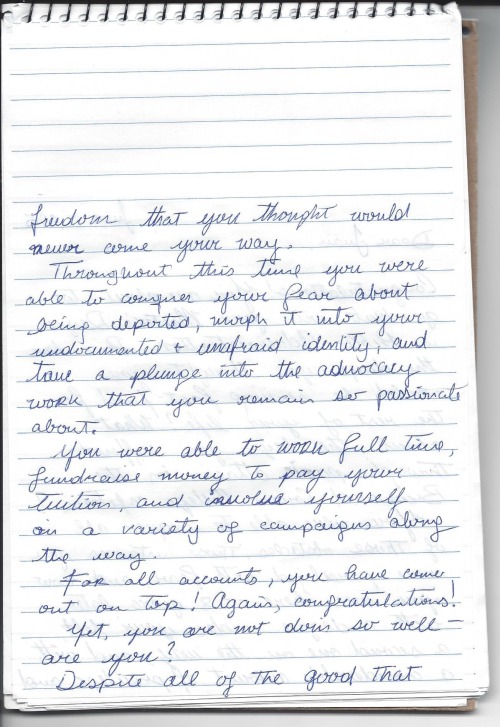 freedom that you thought would
never come your way.
Throughout this time you were
able to conquer your fear about
being deported, morph it into your
undocumented + unafraid identity, and
take a plunge into the advocacy
work that you remain so passionate
about.
You were able to work full time,
fundraise money to pay your
tuition, and involve yourself
in a variety of campaigns along
the way.
For all accounts, you have come
out on top! Again, congratulations!
Yet, you are not doin so well –
are you?
Despite all of the good that